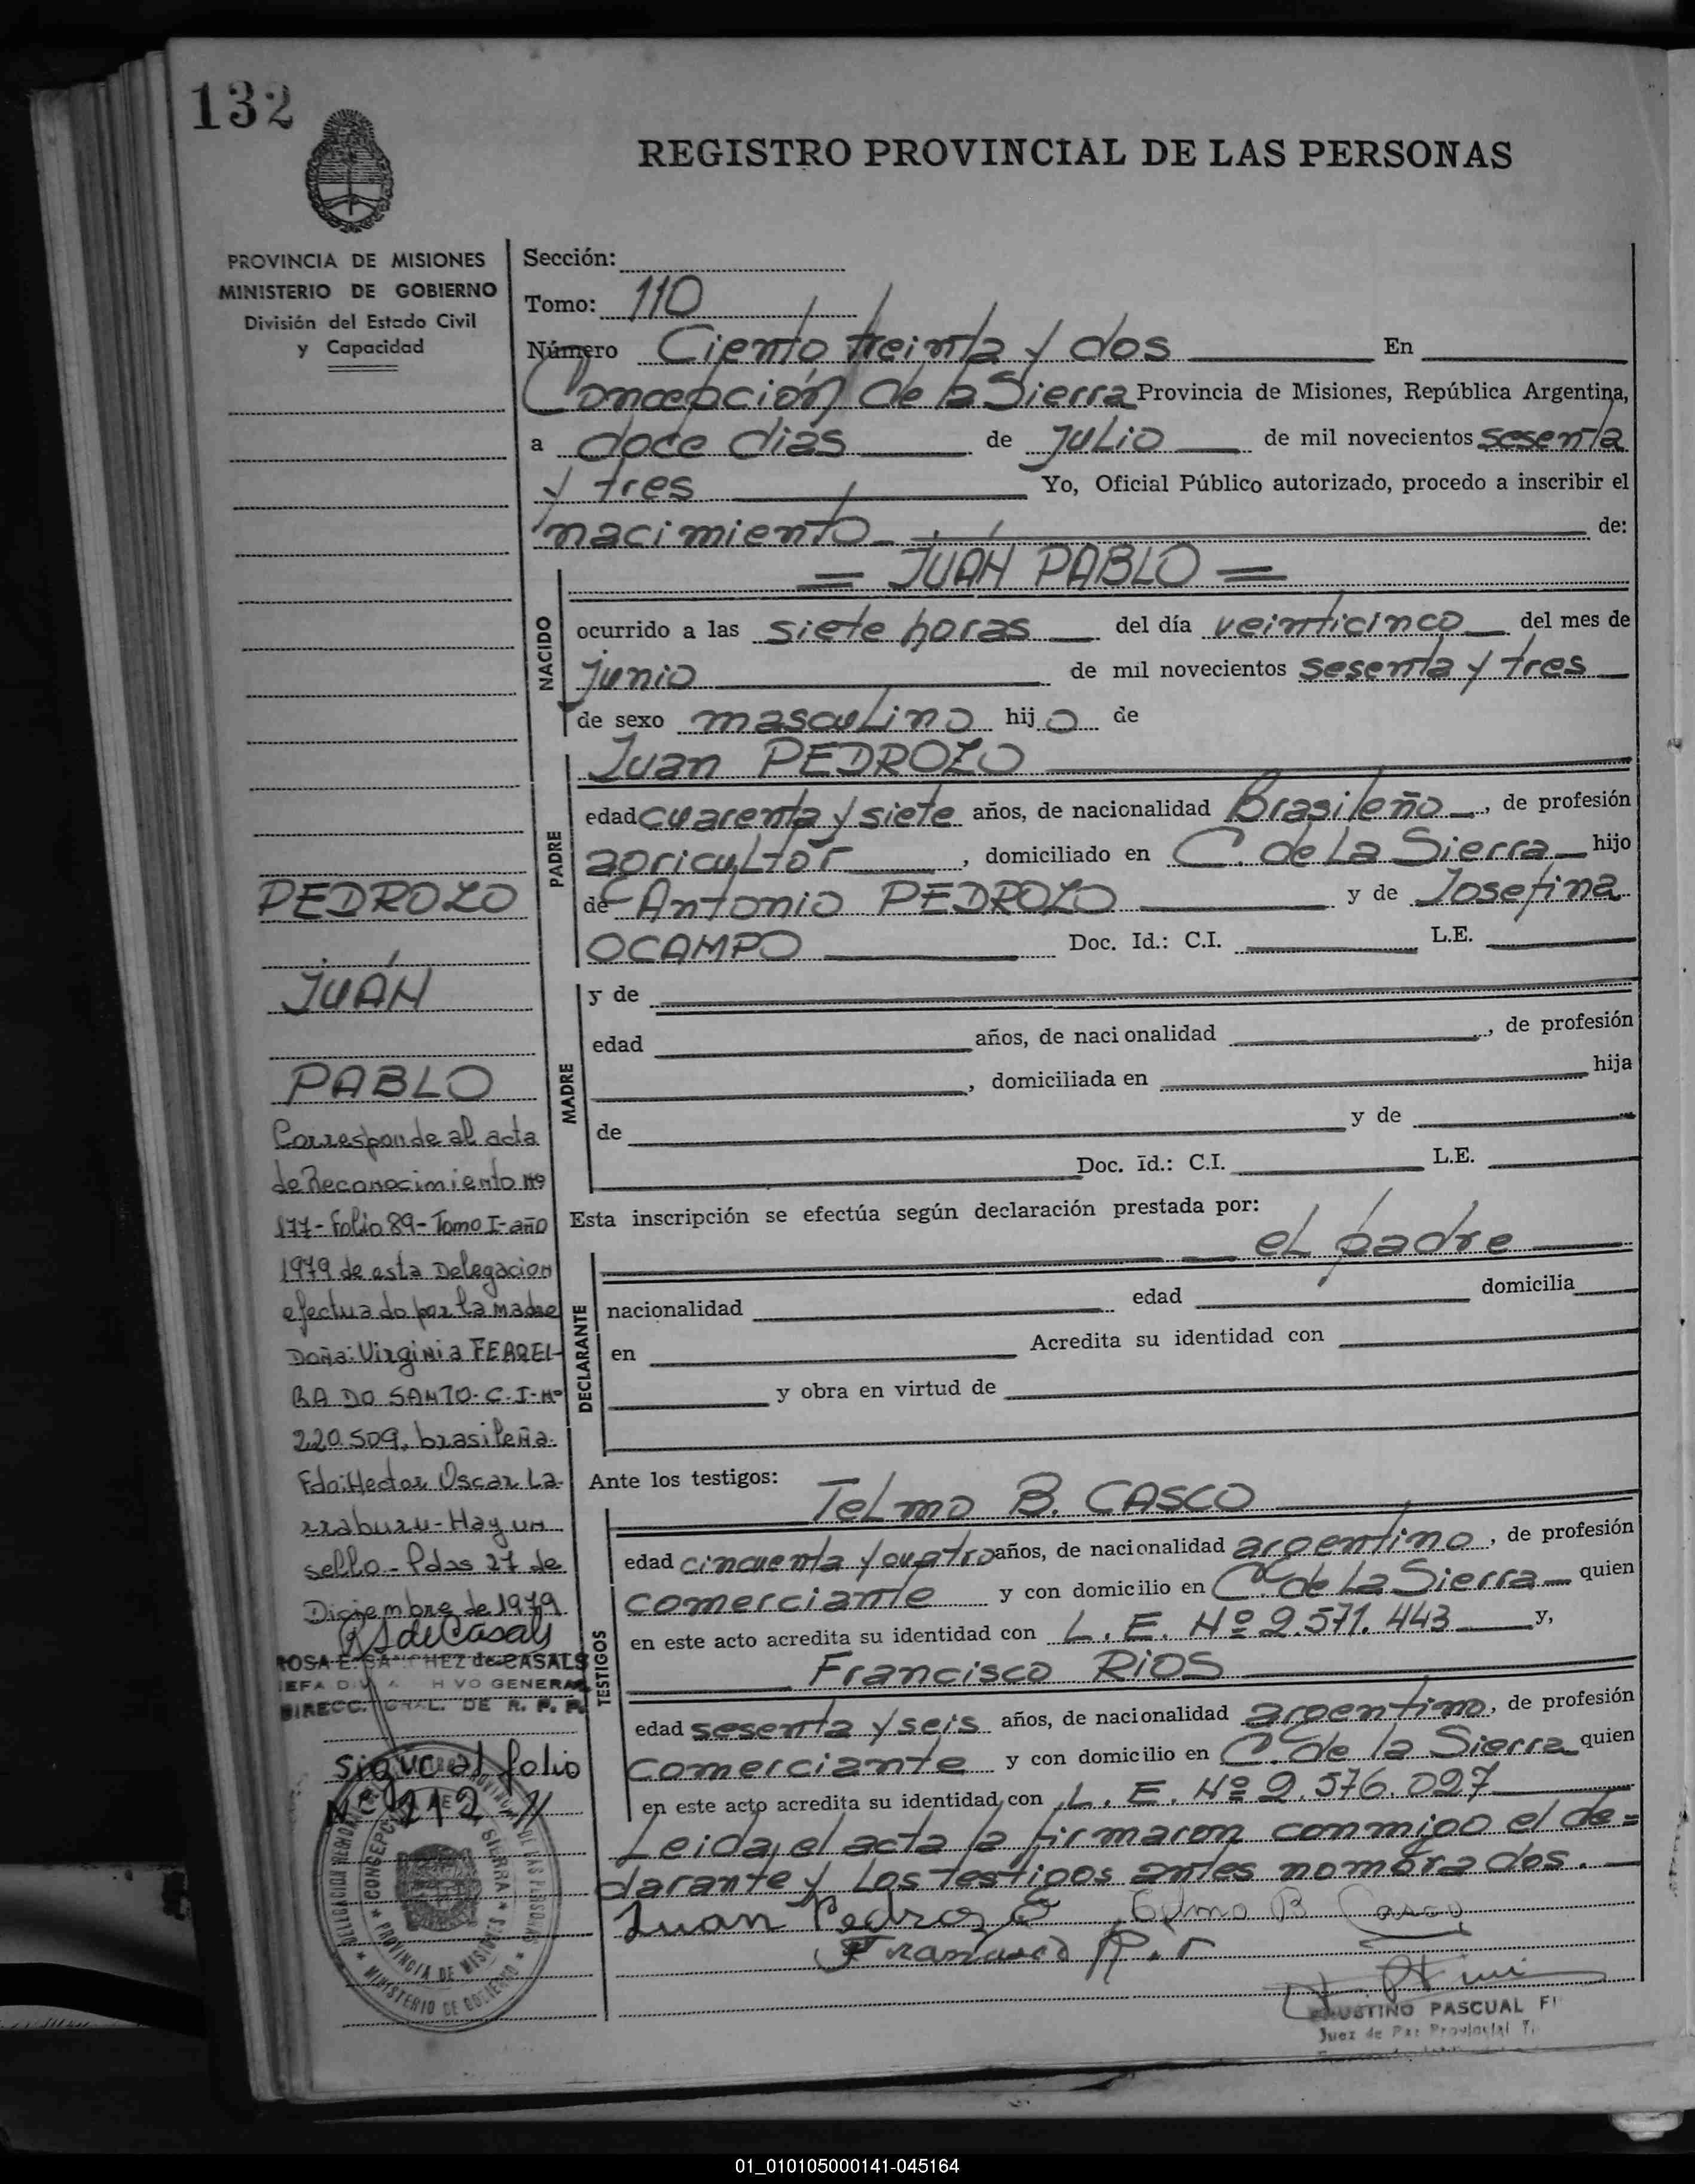 132
REGISTRO PROVINCIAL DE LAS PERSONAS
PROVINCIA DE MISIONES
MINISTERIO DE GOBIERNO
División del Estado Civil
y Capacidad
PEDROZO
JUAN
PABLO
Corresponde al acta
de Reconocimiento Nº
177-Folio 89-Tomo I-año
1979 de esta Delegacion
efectuado por la madre
Doña: Virginia FERREI-
RA DO SANTO-C-I-Nº
220.509, brasileña.
Fdo: Hector Oscar La-
rraburu-Hay un
sello-Pdas 27 de
Diciembre de 1979
RS de Casals
ROSA E. SANCHEZ de CASALS
DIRECC. GRAL. DE R. P. P.
sigue al folio
Nº 212 //
Sección:
Tomo: 110
Número Ciento treinta y dos En
Concepción de la Sierra Provincia de Misiones, República Argentina,
a doce dias de julio de mil novecientos sesenta
y tres Yo, Oficial Público autorizado, procedo a inscribir el
nacimiento de:
= JUAN PABLO =
NACIDO
ocurrido a las siete horas del día veinticinco del mes de
junio de mil novecientos sesenta y tres
de sexo masculino hijo de
PADRE
Juan PEDROZO
edad cuarenta y siete años, de nacionalidad Brasileño, de profesión
agricultor, domiciliado en C. de La Sierra hijo
de Antonio PEDROZO y de Josefina
OCAMPO Doc. Id.: C.I. L.E.
MADRE
y de
edad años, de nacionalidad , de profesión
, domiciliada en hija
de y de
Doc. Id.: C.I. L.E.
Esta inscripción se efectúa según declaración prestada por:
el padre
DECLARANTE
nacionalidad edad domicilia
en Acredita su identidad con
y obra en virtud de
Ante los testigos:
TESTIGOS
Telmo B. CASCO
edad cincuenta y cuatro años, de nacionalidad argentino, de profesión
comerciante y con domicilio en C. de La Sierra quien
en este acto acredita su identidad con L. E. Nº 2.571.443 y,
Francisco RIOS
edad sesenta y seis años, de nacionalidad argentino, de profesión
comerciante y con domicilio en C. de la Sierra quien
en este acto acredita su identidad con L. E. Nº 2.576.027
Leida el acta la firmaron conmigo el de=
clarante y los testigos antes nombrados.
Juan Pedrozo Telmo B Casco
Francisco
FAUSTINO PASCUAL
Juez de Paz Provincial
DELEGACION CONCEPCION DE LA SIERRA
PROVINCIA DE MISIONES
MINISTERIO DE GOBIERNO
01_010105000141-045164